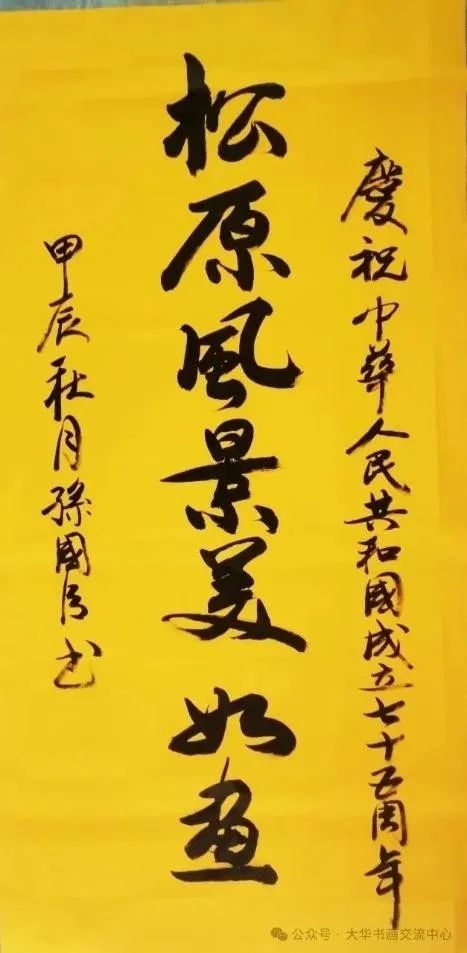 慶祝中華人民共和國成立七十五周年
松原風景美如畫
甲辰秋月孫國
书
公众号·大华书画交流中心